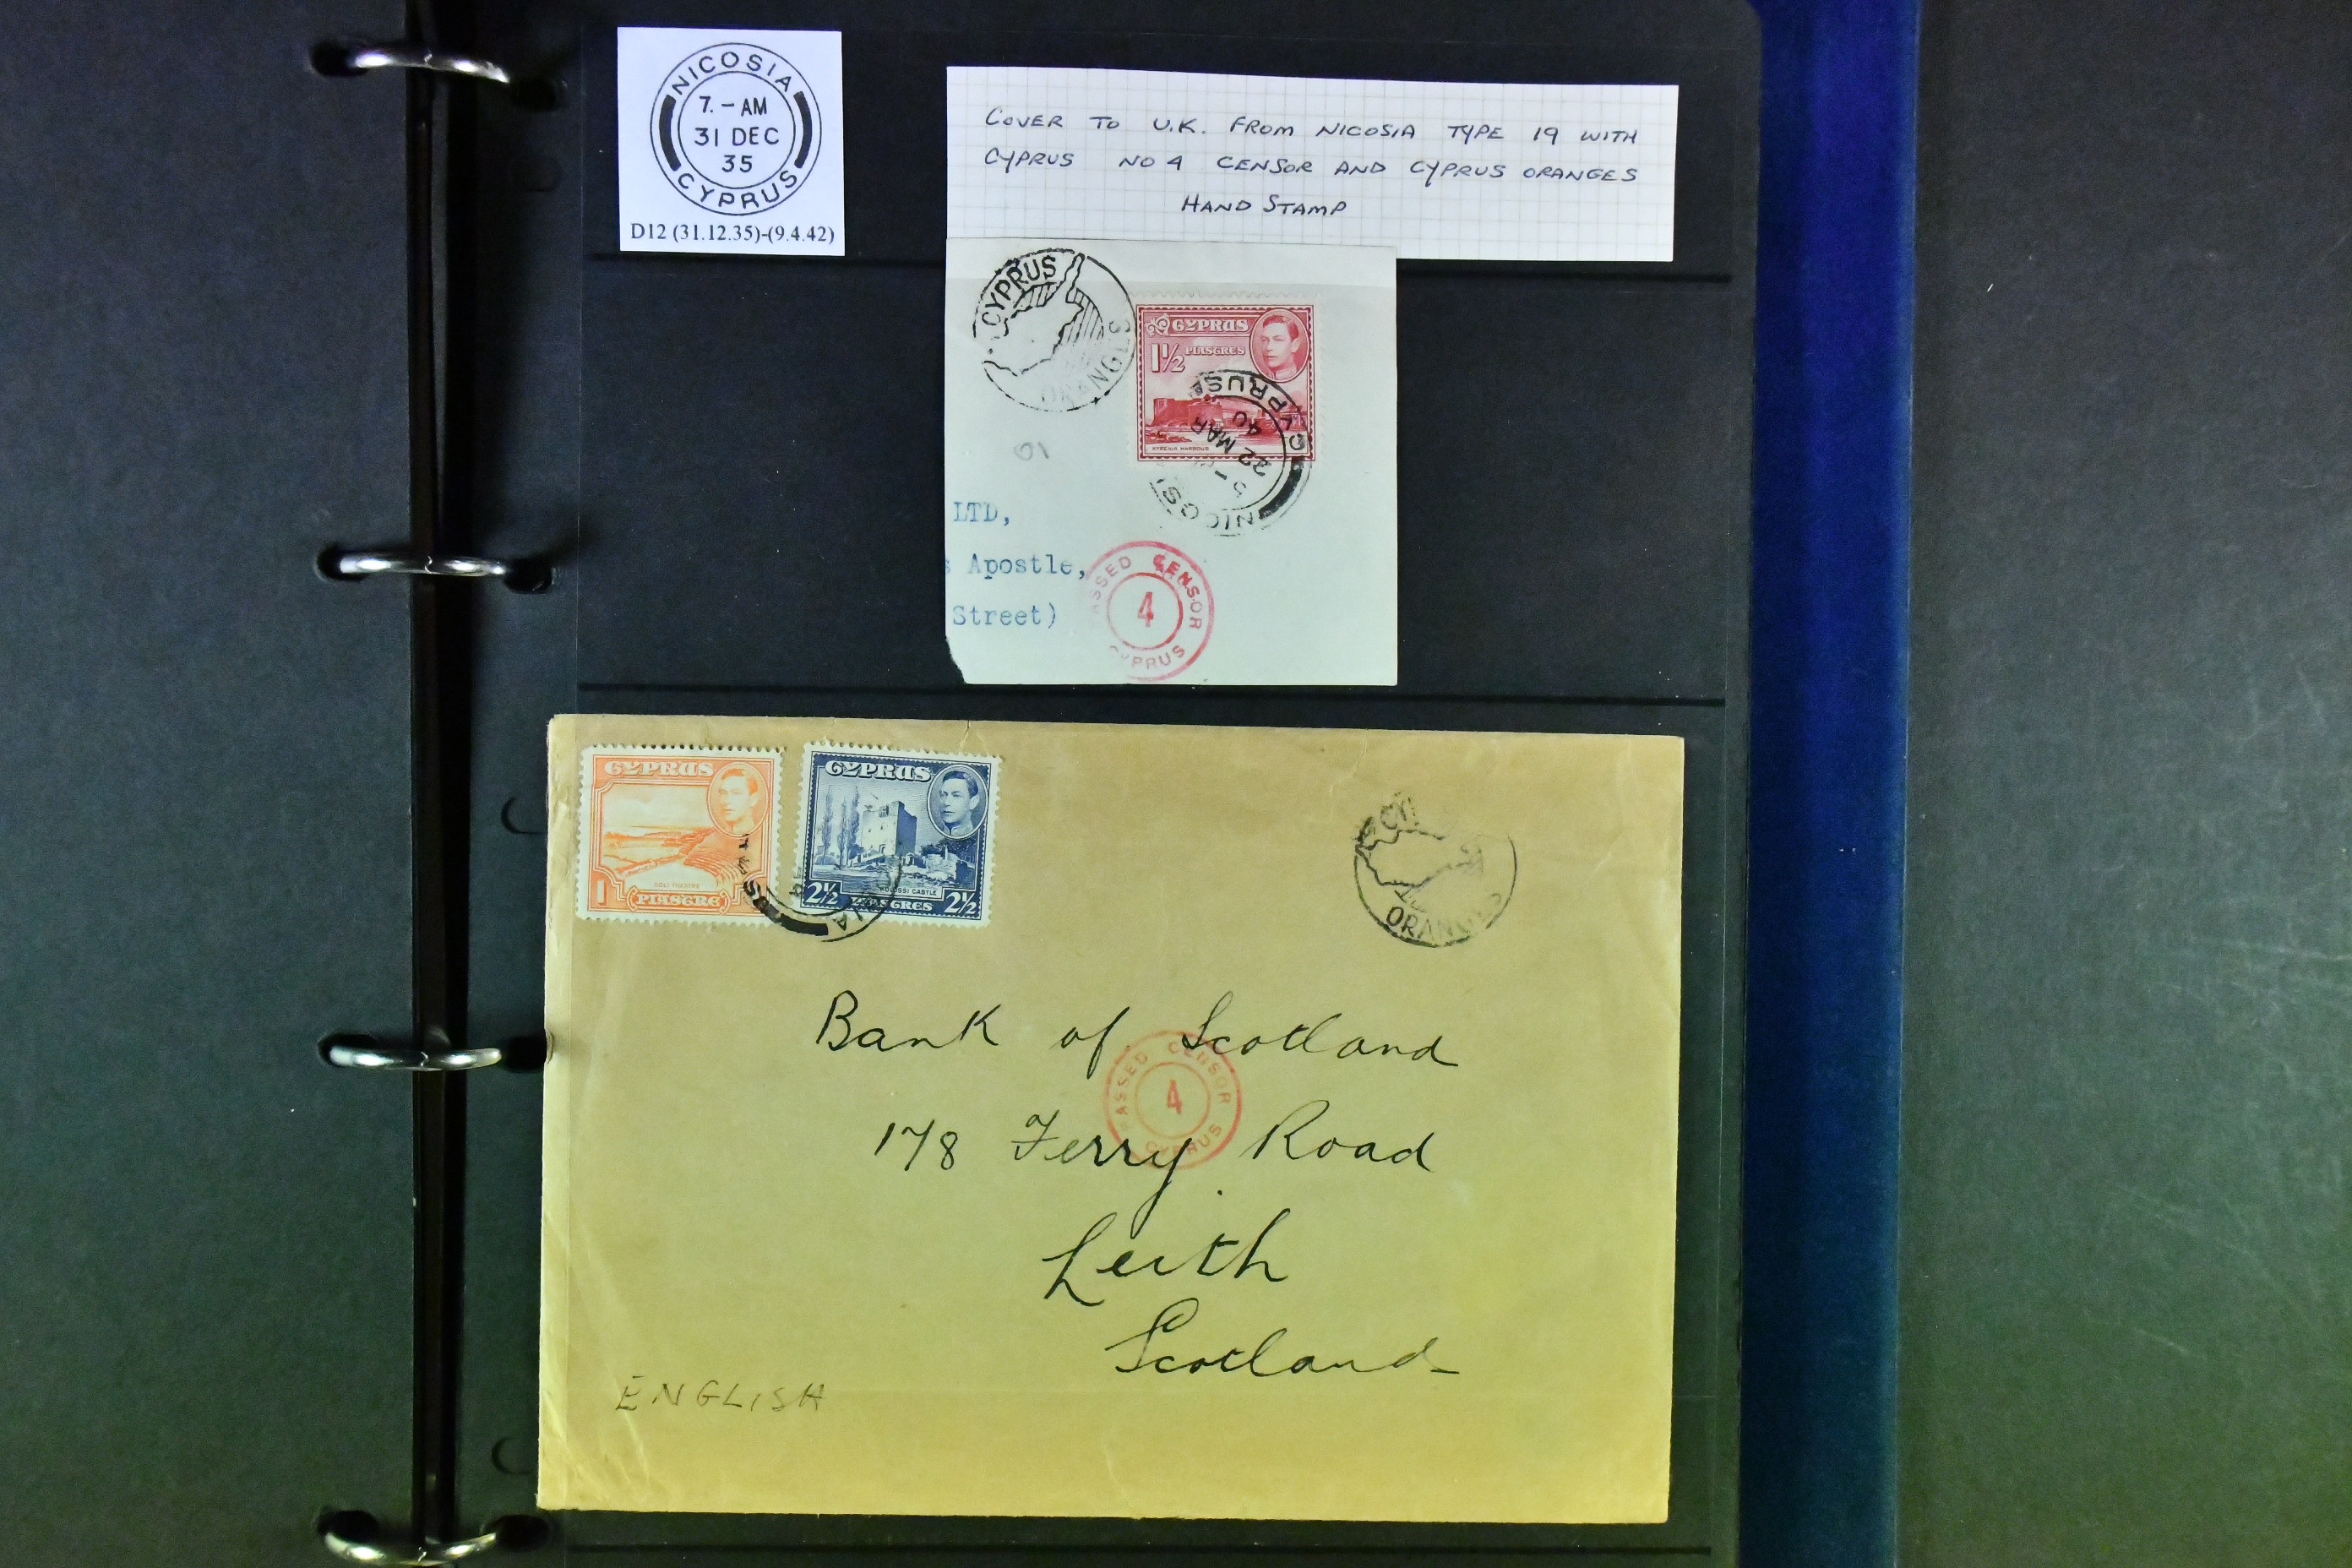 NICOSIA
7. - AM
31 DEC
35
CYPRUS
D12 (31.12.35)-(9.4.42)
COVER TO U.K. FROM NICOSIA TYPE 19 WITH
CYPRUS NO 4 CENSOR AND CYPRUS ORANGES
HAND STAMP
CYPRUS
ORANGES
CYPRUS
1½ PIASTRES
KYRENIA HARBOUR
CYPRUS
22 MAR
40
NICOSI
LTD,
Apostle,
Street)
PASSED CENSOR
4
CYPRUS
CYPRUS
SOLI THEATRE
1 PIASTRE
CYPRUS
KOLOSSI CASTLE
2½ PIASTRES 2½
ORANGES
Bank of Scotland
178 Ferry Road
Leith
Scotland
PASSED CENSOR
4
CYPRUS
ENGLISH